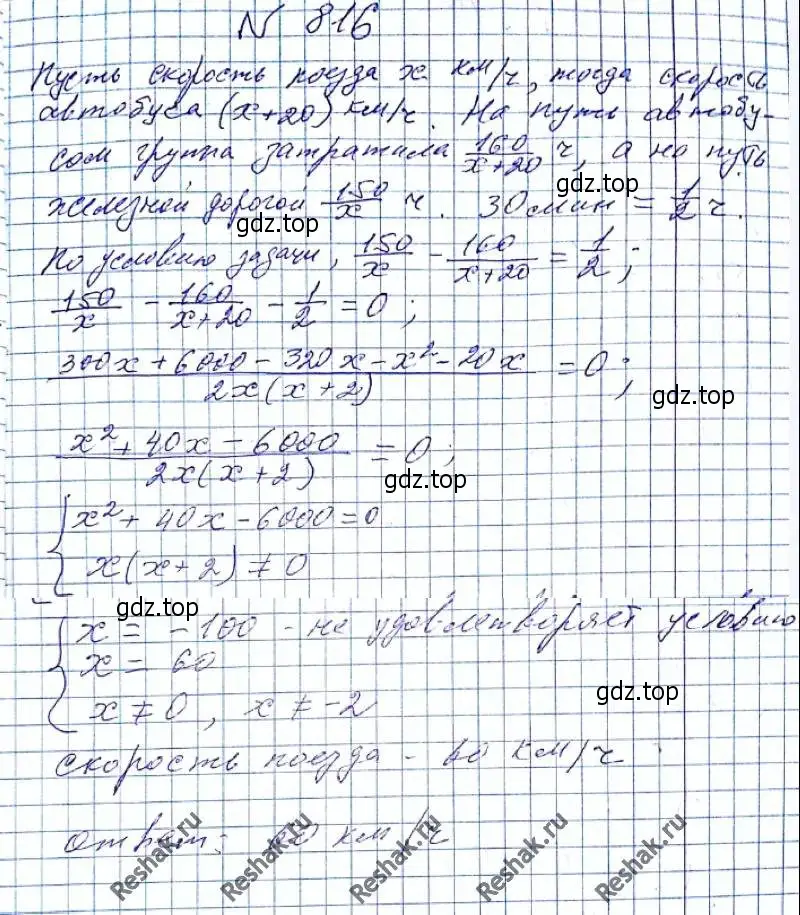 N 816
Пусть скорость поезда x км/ч, тогда скорость
автобуса (x+20) км/ч. На путь автобу-
сом группа затратила 160/(x+20) ч, а на путь
gdz.top
железной дорогой 150/x ч. 30 мин = 1/2 ч.
gdz.top
По условию задачи, 150/x - 160/(x+20) = 1/2;
150/x - 160/(x+20) - 1/2 = 0;
(300x + 6000 - 320x - x² - 20x)/(2x(x+2)) = 0;
gdz.top
(x² + 40x - 6000)/(2x(x+2)) = 0;
gdz.top
{ x² + 40x - 6000 = 0
x(x+2) ≠ 0
gdz.top
{ x = -100 - не удовлетворяет условию
x = 60
gdz.top
x ≠ 0, x ≠ -2
скорость поезда - 60 км/ч
Ответ: 60 км/ч
Reshak.ru
Reshak.ru
Reshak.ru
Reshak.ru
Reshak.ru